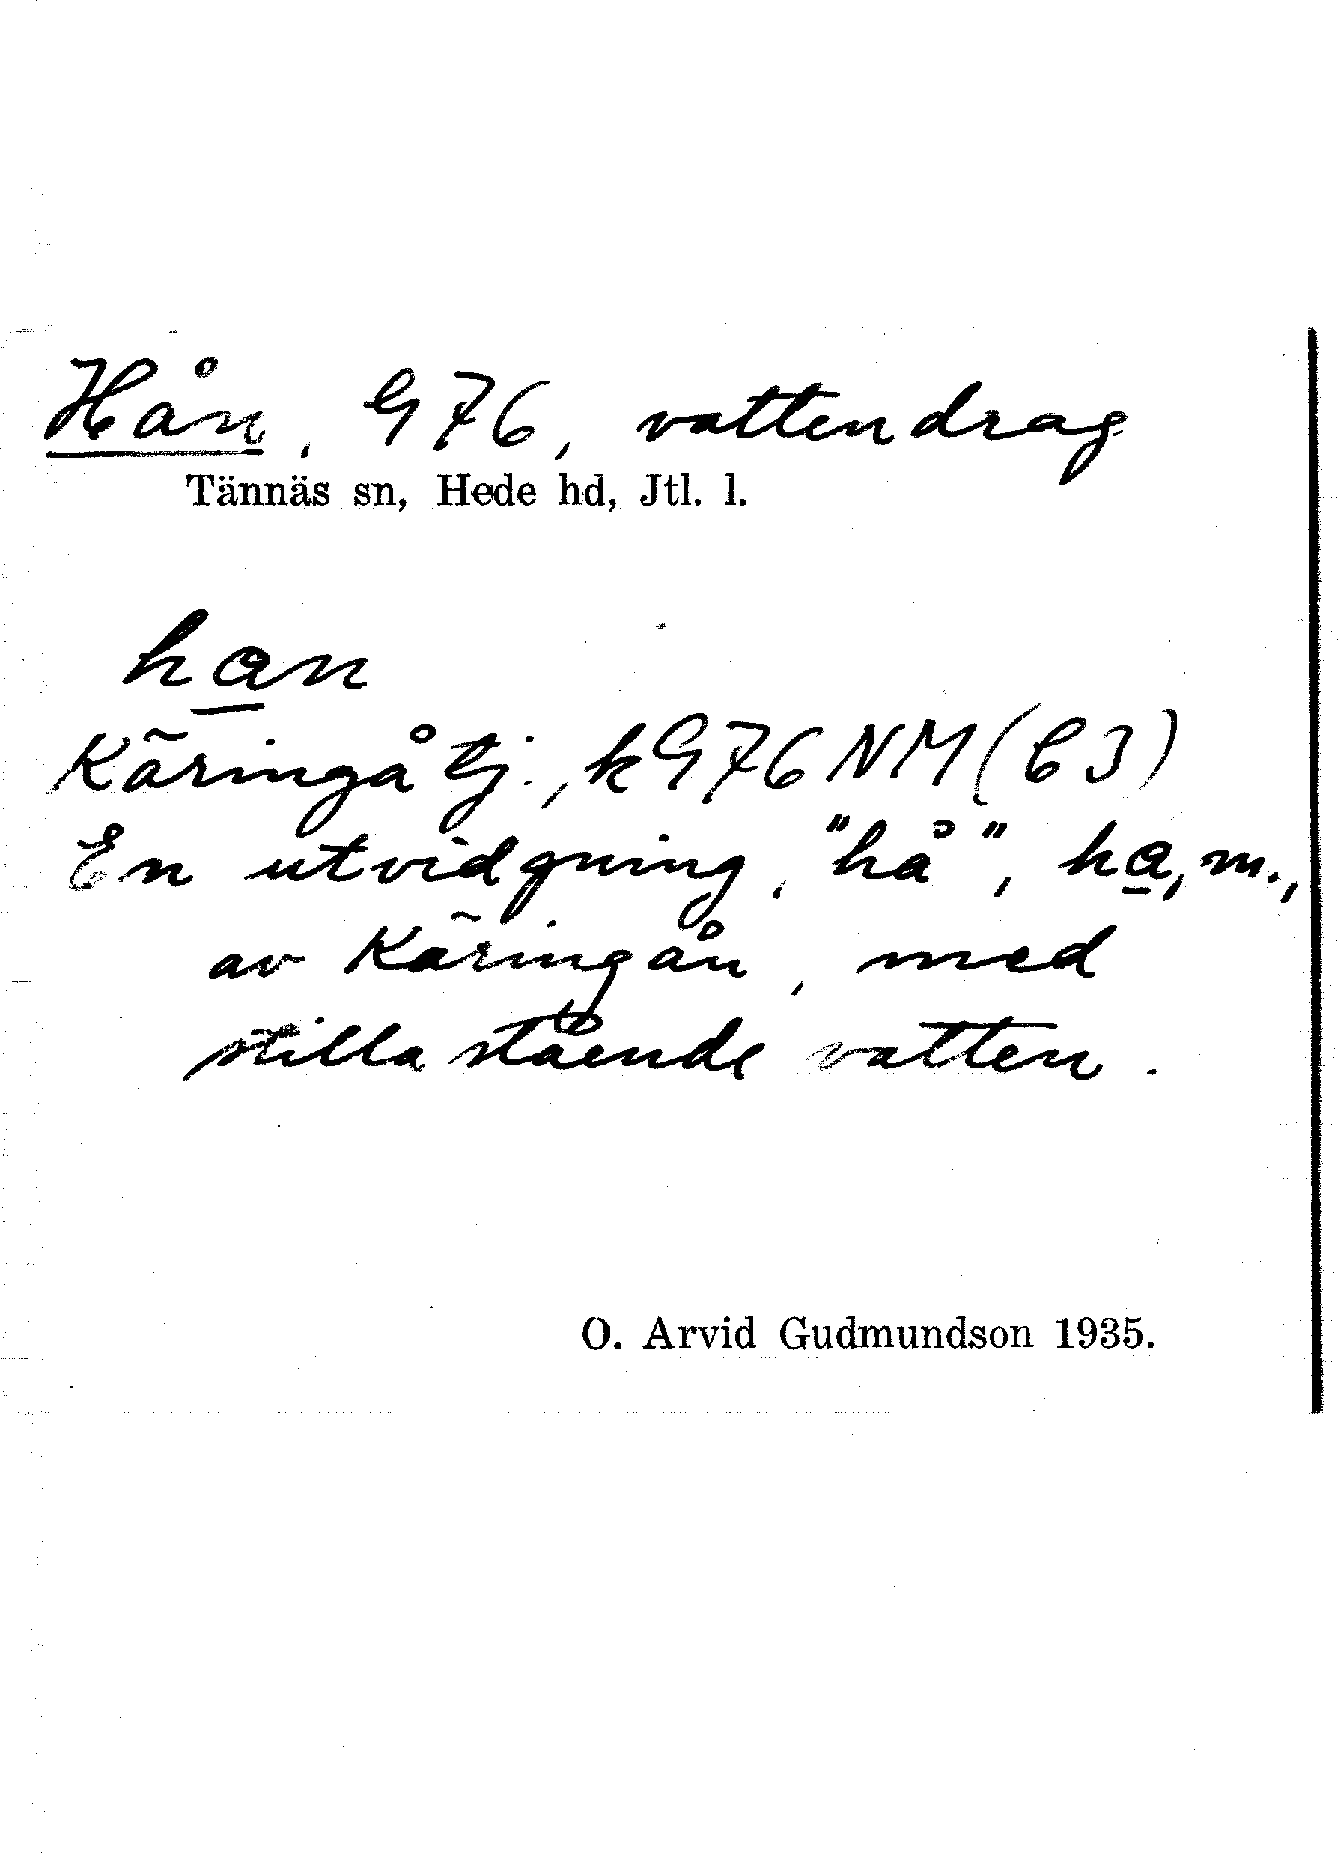 Hån, G76, vattendrag
Tännäs sn, Hede hd, Jtl. l.
han
Käringåtj., k G76 NM (C3)
En utvidgning, "hå", ha, m.,
av Käringån, med
stillastående vatten.
O. Arvid Gudmundson 1935.